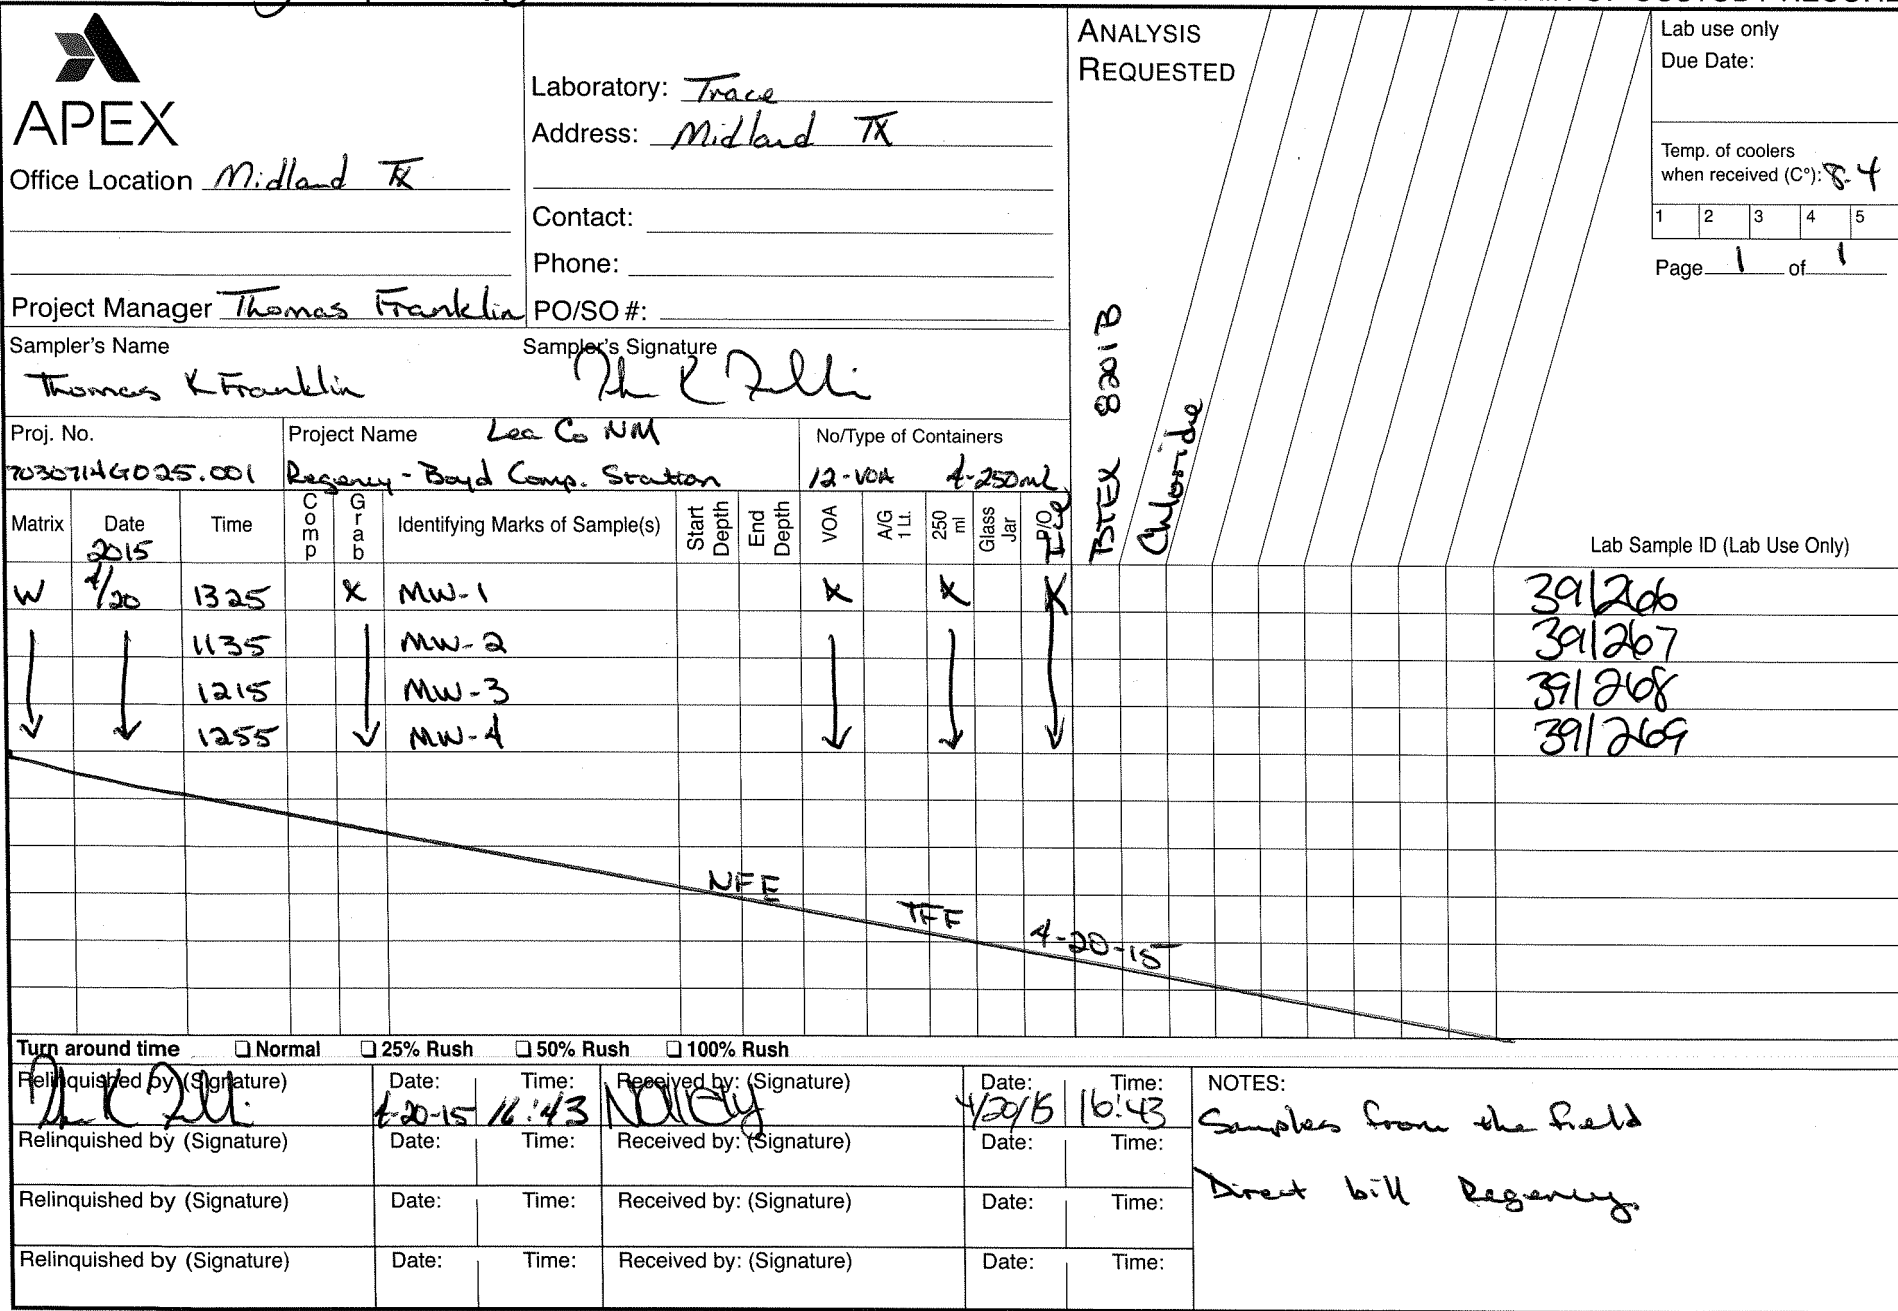 CHAIN OF CUSTODY RECORD
APEX
Office Location Midland TX
Project Manager Thomas Franklin
Laboratory: Trace
Address: Midland TX
Contact:
Phone:
PO/SO #:
Sampler's Name
Thomas K Franklin
Sampler's Signature
ANALYSIS
REQUESTED
BTEX 8201B
Chloride
Lab use only
Due Date:
Temp. of coolers
when received (C°): 8.4
1 2 3 4 5
Page 1 of 1
Proj. No.
7030714G025.001
Project Name Lea Co NM
Regency - Boyd Comp. Station
No/Type of Containers
12-VOA 4-250mL
Matrix Date Time Comp Grab Identifying Marks of Sample(s) Start Depth End Depth VOA A/G 1 Lt. 250 ml Glass Jar P/O Lab Sample ID (Lab Use Only)
2015
W 4/20 1325 X MW-1 X X X 391266
1135 MW-2 391267
1215 MW-3 391268
1255 MW-4 391269
NFE TFF 4-20-15
Turn around time Normal 25% Rush 50% Rush 100% Rush
Relinquished by (Signature) Date: Time: Received by: (Signature) Date: Time:
4-20-15 16:43 4/20/15 16:43
Relinquished by (Signature) Date: Time: Received by: (Signature) Date: Time:
Relinquished by (Signature) Date: Time: Received by: (Signature) Date: Time:
Relinquished by (Signature) Date: Time: Received by: (Signature) Date: Time:
NOTES:
Samples from the field
Direct bill Regency